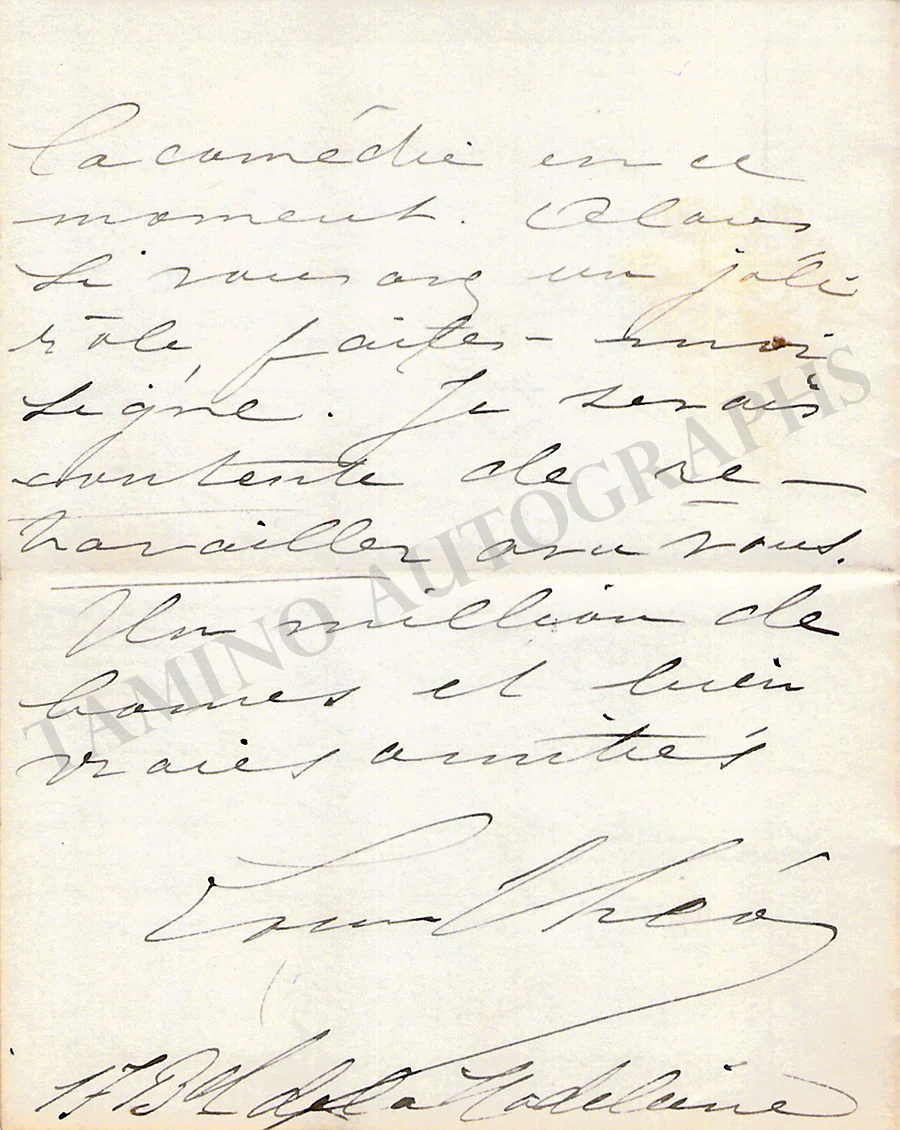 la comédie en ce
moment. Alors
si vous avez un joli
rôle, faites-moi
signe. Je serais
contente de re-
travailler avec vous.
Un million de
bonnes et bien
vraies amitiés
Louise Théo
17 Bd de la Madeleine
TAMINO AUTOGRAPHS